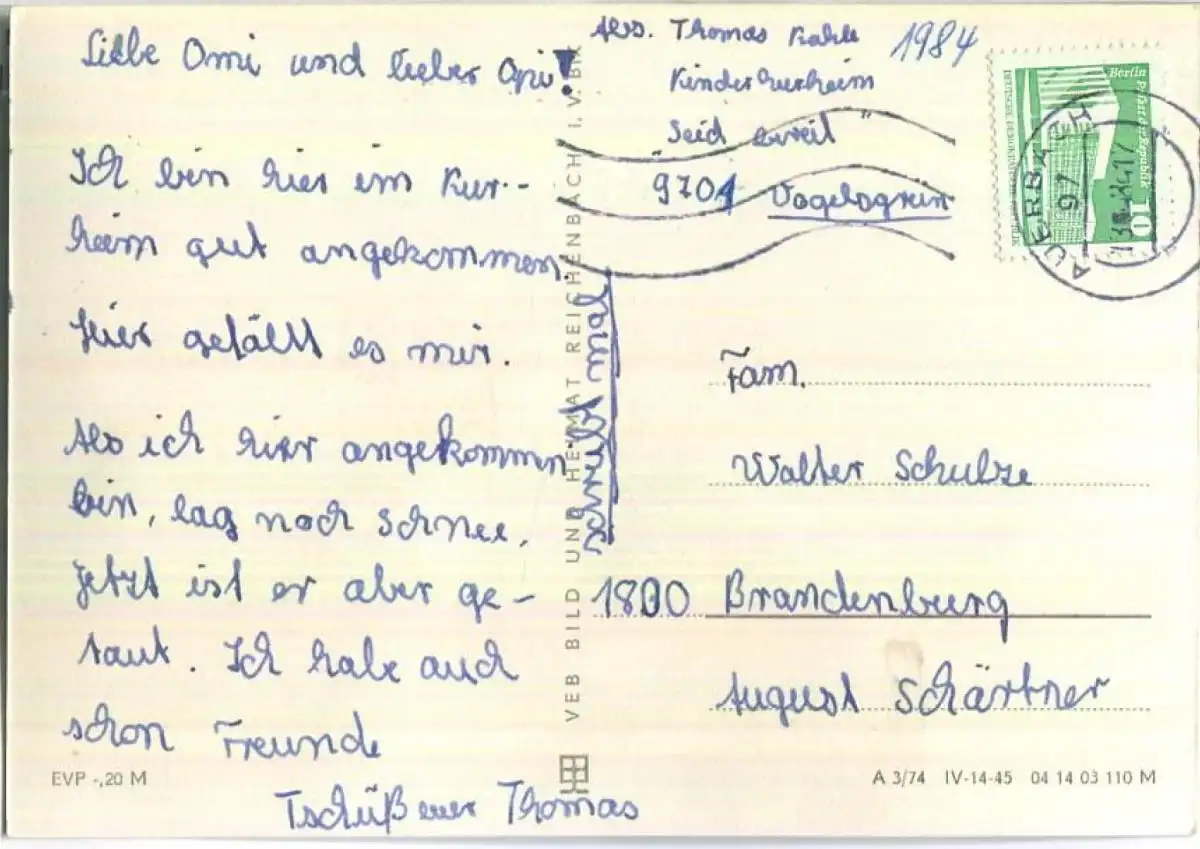 Liebe Omi und lieber Opi!
Ich bin hier im Kur-
heim gut angekommen.
Hier gefällt es mir.
Als ich hier angekommn
bin, lag noch Schnee.
Jetzt ist er aber ge-
taut. Ich habe auch
schon Freunde
Tschüß euer Thomas
schreibt mal
EVP -,20 M
VEB BILD UND HEIMAT REICHENBACH I. V. BK
Abs. Thomas Kahle
1984
Kinderkurheim
"Seid bereit"
9701 Vogelsgrün
Berlin
Palast der Republik
10
AUERBACH
97
Fam.
Walter Schulze
1800 Brandenburg
August Schärtner
A 3/74 IV-14-45 04 14 03 110 M